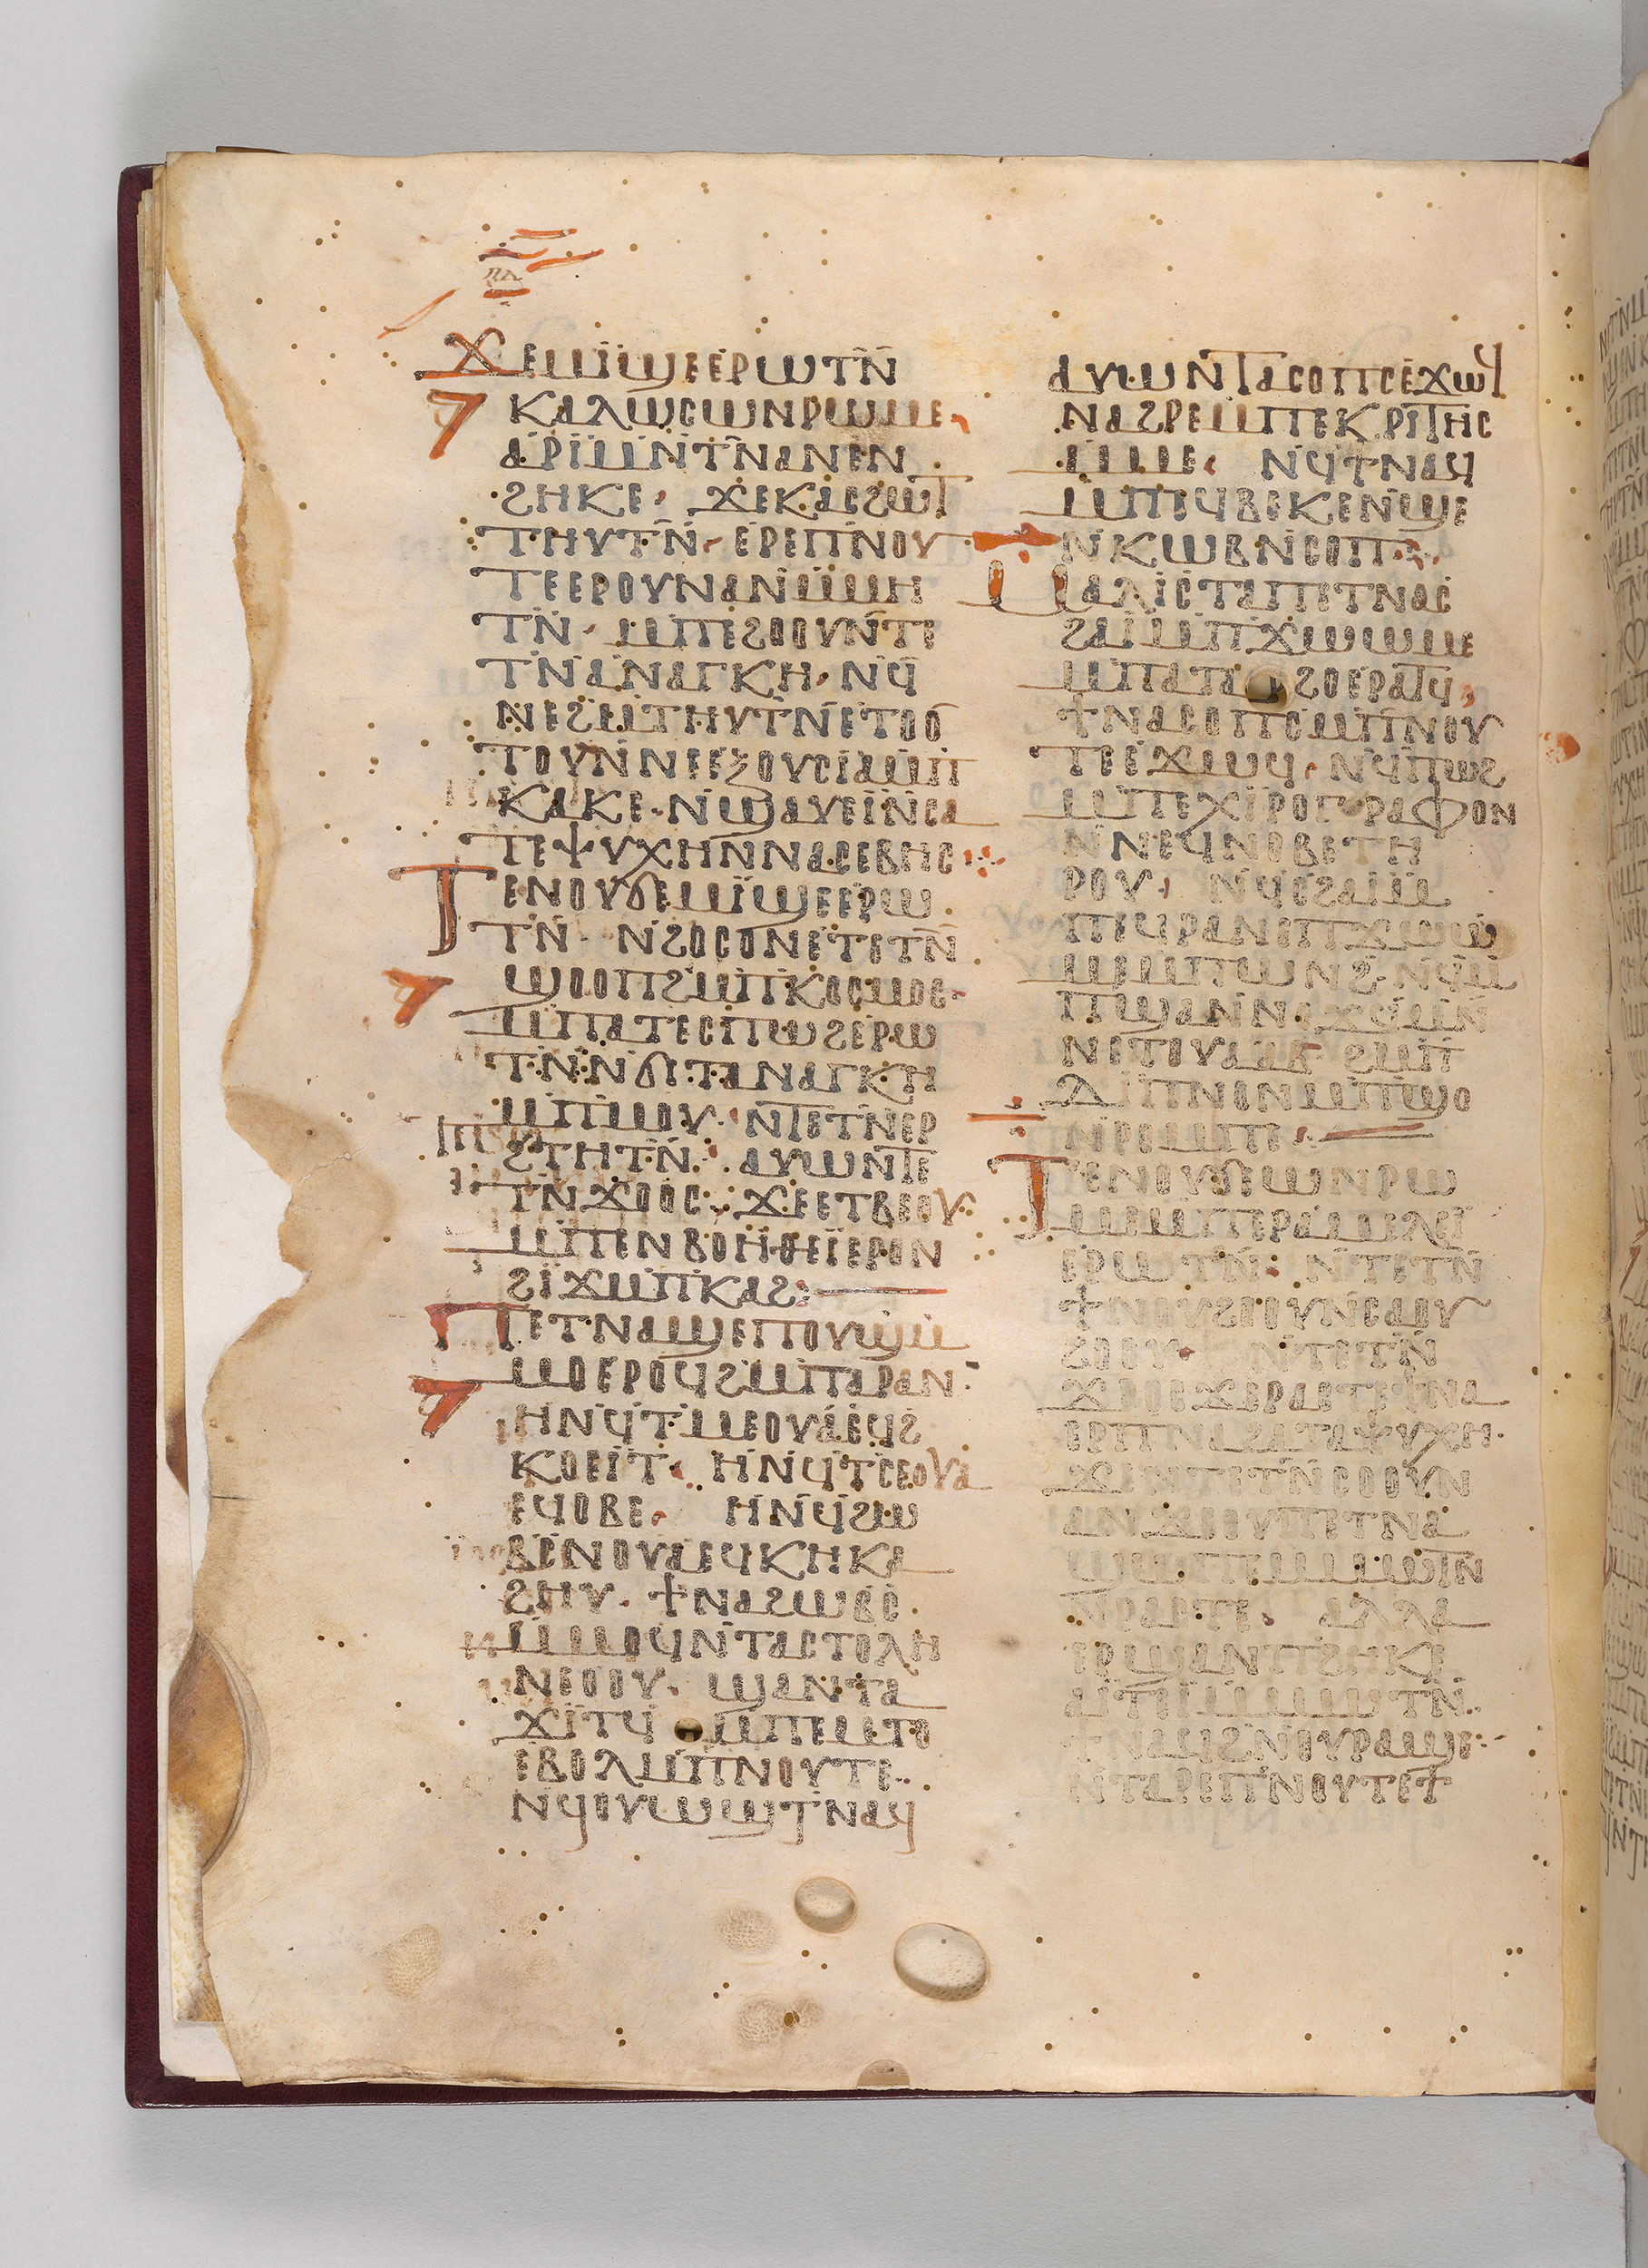 Ϫⲉⲙⲓϣⲉⲉⲣⲱⲧⲛ̄
ⲕⲁⲗⲱⲥⲱⲛⲣⲱⲙⲉ
ⲁⲣⲓⲙⲛ̄ⲧⲛⲁⲛⲉⲛ
ϩⲏⲕⲉ · ϫⲉⲕⲁⲥϩⲱⲧ
ⲧⲏⲩⲧⲛ̄ · ⲉⲣⲉⲡⲛⲟⲩ
ⲧⲉⲉⲣⲟⲩⲛⲁⲛⲙ̄ⲙⲏ
ⲧⲛ̄ · ⲙ̄ⲡⲉϩⲟⲟⲩⲛ̄ⲧⲉ
ⲧⲛⲁⲛⲁⲅⲕⲏ · ⲛϥ̄
ⲛⲉϩⲙ̄ⲧⲏⲩⲧⲛ̄ⲉⲧⲟⲟ
ⲧⲟⲩⲛ̄ⲛⲉⲉⲝⲟⲩⲥⲓⲁⲙ̄ⲡ
ⲕⲁⲕⲉ · ⲛ̄ϣⲁⲩⲉⲓⲛ̄ⲥⲁ
ⲧⲉⲯⲩⲭⲏⲛⲛⲁⲥⲉⲃⲏⲥ
Ⲧⲉⲛⲟⲩϭⲉⲙⲓϣⲉⲉⲣⲱ
ⲧⲛ̄ · ⲛ̄ϩⲟⲥⲟⲛⲉⲧⲉⲧⲛ̄
ϣⲟⲟⲡϩⲙ̄ⲡⲕⲟⲥⲙⲟⲥ ·
ⲙ̄ⲡⲁⲧⲉⲥⲡⲱϩⲉⲣⲱ
ⲧⲛ̄ⲛ̄ϭⲓⲧⲁⲛⲁⲅⲕⲏ
ⲙ̄ⲡⲙⲟⲩ · ⲛ̄ⲧⲉⲧⲛ̄ⲉⲣ
ϩⲧⲏⲧⲛ̄ · ⲁⲩⲱⲛ̄ⲧⲉ
ⲧⲛ̄ϫⲟⲟⲥ · ϫⲉⲉⲧⲃⲉⲟⲩ
ⲙ̄ⲡⲉⲛⲃⲟⲏⲑⲉⲓⲉⲣⲟⲛ
ϩⲓϫⲙ̄ⲡⲕⲁϩ :
Ⲡⲉⲧⲛⲁϣⲉⲡⲟⲩϣⲙ̄
ⲙⲟⲉⲣⲟϥϩⲙ̄ⲡⲁⲣⲁⲛ ·
ⲏⲛϥ̄ⲧⲙ̄ⲙⲉⲟⲩⲁⲉϥϩ
ⲕⲟⲉⲓⲧ · ⲏⲛϥ̄ⲧⲥⲉⲟⲩⲁ
ⲉϥⲟⲃⲉ · ⲏⲛϥ̄ϩⲱ
ⲃⲥ̄ⲛⲟⲩⲁⲉϥⲕⲏⲕⲁ
ϩⲏⲩ · ϯⲛⲁϩⲱⲃⲥ
ⲙ̄ⲙⲟϥⲛ̄ⲧⲁⲥⲧⲟⲗⲏ
ⲛⲉⲟⲟⲩ · ϣⲁⲛⲧⲁ
ϫⲓⲧϥ̄ ⲙ̄ⲡⲉⲙⲧⲟ
ⲉⲃⲟⲗⲙ̄ⲡⲛⲟⲩⲧⲉ ·
ⲛϥ̄ⲟⲩⲱϣⲧ̄ⲛⲁϥ
ⲁⲩⲱⲛ̄ⲧⲁⲥⲟⲡⲥⲉϫⲱϥ
ⲛⲁϩⲣⲉⲙⲡⲉⲕⲣⲓⲧⲏⲥ
ⲙ̄ⲙⲉ · ⲛϥ̄ϯⲛⲁϥ
ⲙ̄ⲡϥ̄ⲃⲉⲕⲉⲛ̄ϣⲉ
ⲛ̄ⲕⲱⲃⲛ̄ⲥⲟⲡ ·
Ⲙⲁⲗⲓⲥⲧⲁⲡⲉⲧⲛⲁⲥ
ϩⲁⲓⲙ̄ⲡϫⲱⲱⲙⲉ
ⲙ̄ⲡⲁⲧⲁ ϩⲟⲉⲣⲁⲧϥ̄ ·
ϯⲛⲁⲥⲟⲡⲥⲙ̄ⲡⲛⲟⲩ
ⲧⲉⲉϫⲱϥ · ⲛϥ̄ⲡⲱϩ
ⲙ̄ⲡⲉⲭⲓⲣⲟⲅⲣⲁⲫⲟⲛ
ⲛ̄ⲛⲉϥⲛⲟⲃⲉⲧⲏ
ⲣⲟⲩ · ⲛϥ̄ⲥϩⲁⲓⲙ̄
ⲡⲉϥⲣⲁⲛⲉⲡϫⲱⲱ
ⲙⲉⲙ̄ⲡⲱⲛϩ · ⲛϥ̄ⲙ̄
ⲡϣⲁⲛⲛ̄ϫⲓⲙⲛ̄
ⲛⲉⲧⲟⲩⲁⲁⲃ ϩⲙ̄ⲡ
ⲇⲓⲡⲛⲟⲛⲙ̄ⲡϣⲟ
ⲛ̄ⲣⲟⲙⲡⲉ :
Ⲧⲉⲛⲟⲩϭⲉⲱⲛⲣⲱ
ⲙⲉⲙ̄ⲡⲉⲣⲁⲙⲉⲗⲉⲓ
ⲉⲣⲱⲧⲛ̄ : ⲛ̄ⲧⲉⲧⲛ̄
ϯⲛⲟⲩϩⲟⲟⲩⲛ̄ⲥⲁⲟⲩ
ϩⲟⲟⲩ · ⲛ̄ⲧⲉⲧⲛ̄
ϫⲟⲟⲥϫⲉⲣⲁⲥⲧⲉϯⲛⲁ
ⲉⲣⲡⲛⲁϩⲁⲧⲁⲯⲩⲭⲏ ·
ϫⲉⲛⲧⲉⲧⲛ̄ⲥⲟⲟⲩⲛ
ⲁⲛϫⲉⲟⲩⲡⲉⲧⲛⲁ
ϣⲱⲡⲉⲙ̄ⲙⲱⲧⲛ̄
ⲛ̄ⲣⲁⲥⲧⲉ · ⲁⲗⲗⲁ
ⲉⲣϣⲁⲛⲡϩⲏⲕⲉ
ⲁⲓⲧⲉⲓⲙ̄ⲙⲱⲧⲛ̄
ϯⲛⲁϥϩⲛ̄ⲟⲩⲣⲁϣⲉ :
ⲛ̄ⲧⲁⲣⲉⲡⲛⲟⲩⲧⲉϯ